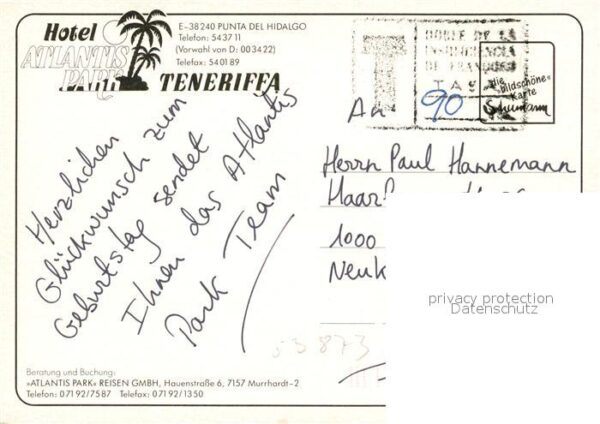 Hotel
ATLANTIS
PARK
TENERIFFA
E-38240 PUNTA DEL HIDALGO
Telefon: 543711
(Vorwahl von D: 003422)
Telefax: 540189
T
DOBLE DE LA
INSUFICIENCIA
DE FRANQUEO
TASA
90
die
»bildschöne«
Karte
Schumann
Herzlichen
Glückwunsch zum
Geburtstag sendet
Ihnen das Atlantis
Park Team
An
Herrn Paul Hannemann
1000
Neuk
53873
privacy protection
Datenschutz
Beratung und Buchung:
»ATLANTIS PARK« REISEN GMBH, Hauenstraße 6, 7157 Murrhardt-2
Telefon: 07192/7587 Telefax: 07192/1350